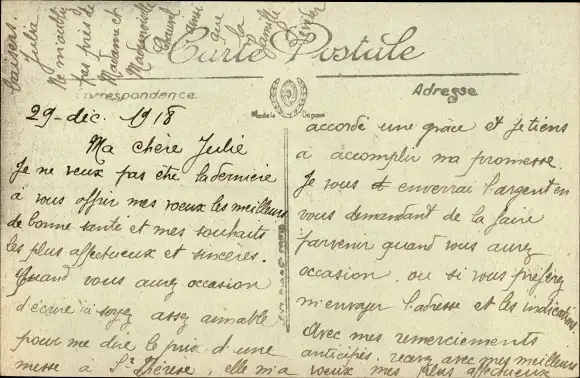 Carte Postale
Correspondance
Adresse
29-déc. 1918
Ma chère Julie
Je ne veux pas être la dernière
à vous offrir mes voeux les meilleurs
de bonne santé et mes souhaits
les plus affectueux et sincères.
Quand vous aurez occasion
d'écrire soyez assez aimable
pour me dire le prix d'une
messe à Ste Thérèse, elle m'a
accordé une grâce et je tiens
à accomplir ma promesse
Je vous enverrai l'argent en
vous demandant de la faire
parvenir quand vous aurez
occasion, ou si vous préférez
m'envoyer l'adresse et les indications
Avec mes remerciements
anticipés, recevez avec mes meilleurs
voeux mes plus affectueux
baisers.
Julie
Ne m'oubliez
pas près de
Madame et
Mademoiselle
ainsi
que la
famille